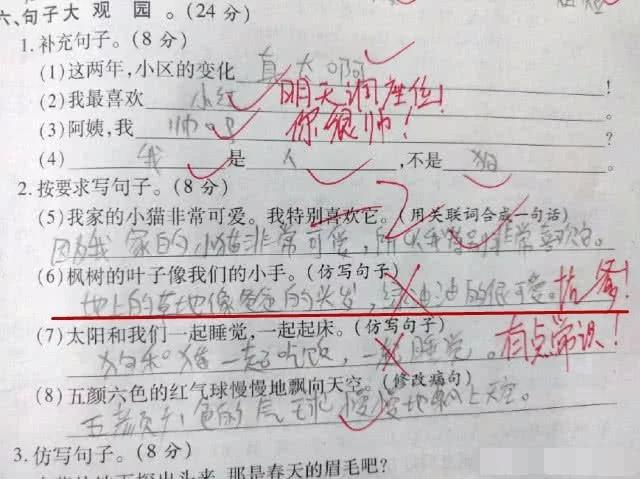 六、句子大观园。(24分)
1.补充句子。(8分)
(1)这两年,小区的变化 真大啊 !
(2)我最喜欢 小红 。 明天调座位!
(3)阿姨,我 帅吗 ? 你很帅!
(4) 我 是 人 ,不是 狗 。
2.按要求写句子。(8分) -2
(5)我家的小猫非常可爱。我特别喜欢它。(用关联词合成一句话)
因为我家的小猫非常可爱,所以我特别非常喜欢它。
(6)枫树的叶子像我们的小手。(仿写句子)
地上的草地像爸爸的头发,绿油油的很可爱。 坑爹!
(7)太阳和我们一起睡觉,一起起床。(仿写句子)
狗和猫一起吃饭,一起睡觉。 有点常识!
(8)五颜六色的红气球慢慢地飘向天空。(修改病句)
五颜六色的气球慢慢地飘上天空。
3.仿写句子。(8分)
探出头来,那是春天的眉毛吧?